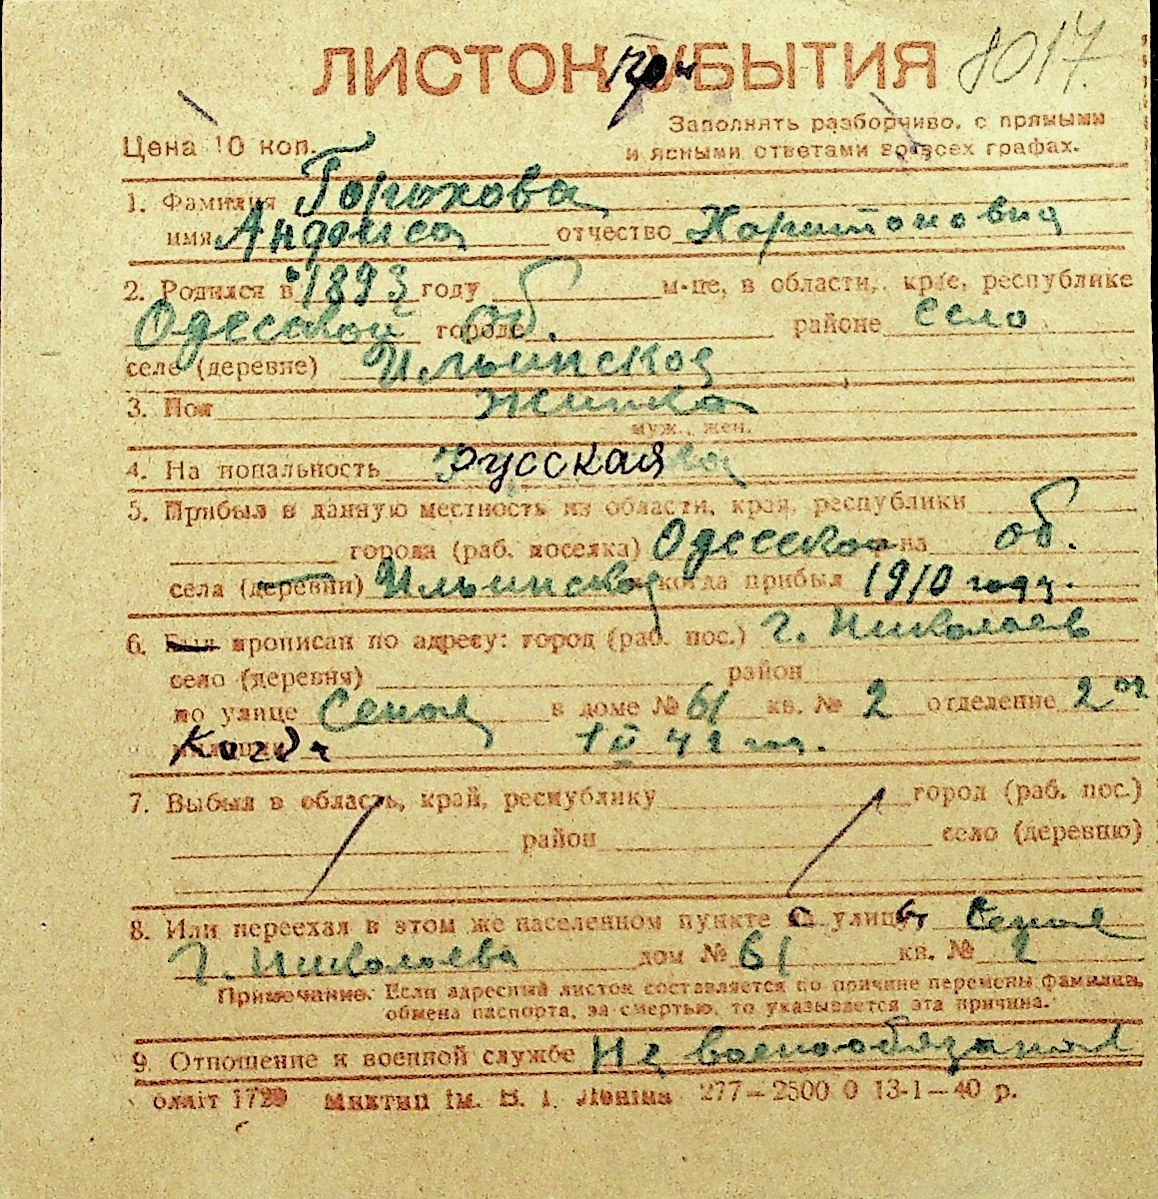 ЛИСТОК УБЫТИЯ 8017.
Цена 10 коп. Заполнять разборчиво, с прямыми
и ясными ответами во всех графах.
1. Фамилия Горохова
имя Анфиса отчество Харитоновна
2. Родился в 1893 году м-це, в области, крае, республике
Одесской городе об. районе село
селе (деревне) Ильинское
3. Пол Женка
муж., жен.
4. На иональность русская
5. Прибыл в данную местность из области, края, республики
города (раб. поселка) Одесской р-на об.
села (деревни) Ильинское когда прибыл 1910 году.
6. Был прописан по адресу: город (раб. пос.) г. Николаев
село (деревня) район
по улице Сеная в доме № 61 кв. № 2 отделение 2 ое
милиции Когда 1 IV 42 год.
7. Выбыл в область, край, республику город (раб. пос.)
район село (деревню)
8. Или переехал в этом же населенном пункте на улицу Сеная
г. Николаева дом № 61 кв. № 2
Примечание. Если адресный листок составляется по причине перемены фамилии,
обмена паспорта, за смертью, то указывается эта причина.
9. Отношение к военной службе Не военнообязаная
облліт 1729 Миктип ім. В. І. Леніна 277—2500 0 13-1—40 р.